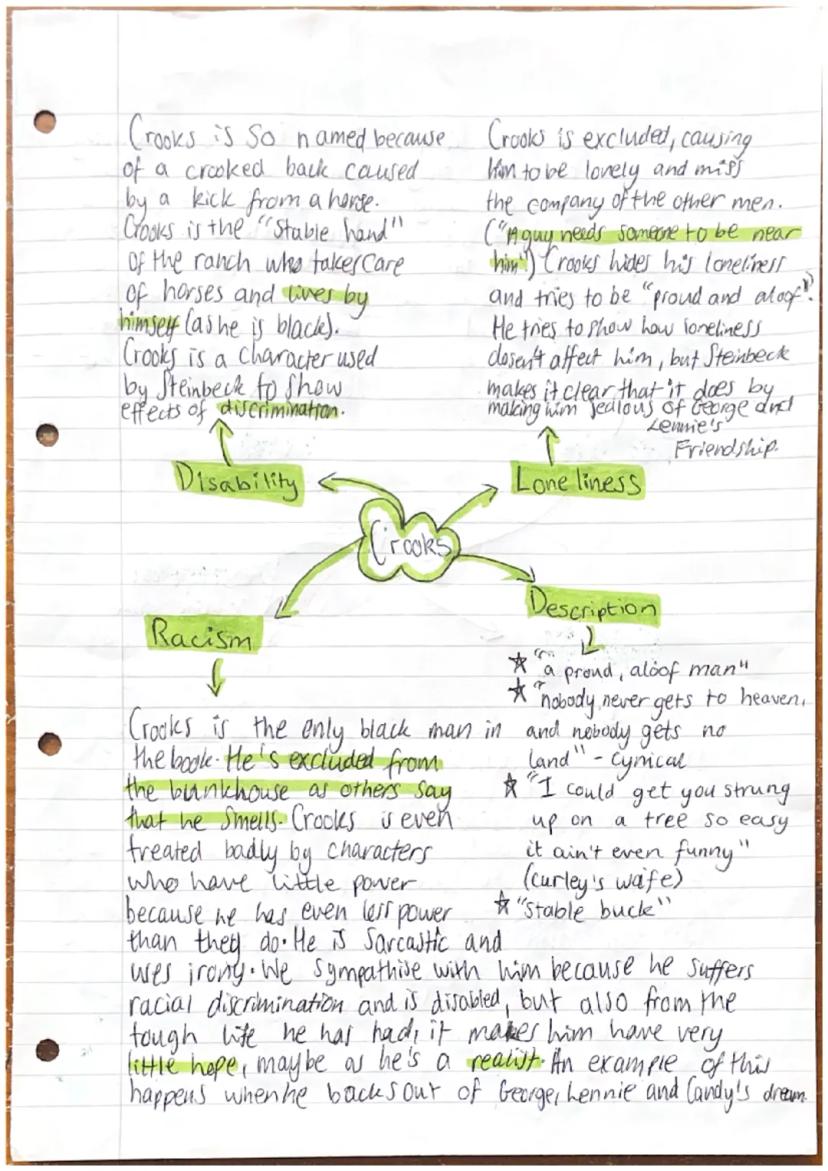 Crooks is so named because
of a crooked back caused
by a kick from a horse.
Crooks is the "stable hand"
of the ranch who takes care
of horses and lives by
himself (as he is black).
Crooks is a character used
by Steinbeck to show
effects of discrimination.
Disability
Crooks is excluded, causing
him to be lovely and miss
the company of the other men.
("A guy needs someone to be near
him") Crooks hides his loneliness
and tries to be "proud and aloof".
He tries to show how loneliness
doesn't affect him, but Steinbeck
makes it clear that it does by
making him jealous of George and
Lennie's
Friendship.
Loneliness
Crooks
Racism
Crooks is the only black man in
the book. He's excluded from
the bunkhouse as others say
that he smells. Crooks is even
treated badly by characters
who have little power
because he has even less power
than they do. He is sarcastic and
uses irony. We sympathise with him because he suffers
racial discrimination and is disabled, but also from the
tough life he has had, it makes him have very
little hope, maybe as he's a realist. An example of this
happens when he backs out of George, Lennie and Candy's dream.
Description
☆ "a proud, aloof man"
☆ "nobody never gets to heaven,
and nobody gets no
land" - cynical
☆ "I could get you strung
up on a tree so easy
it ain't even funny"
(curley's waife)
☆ "stable buck"